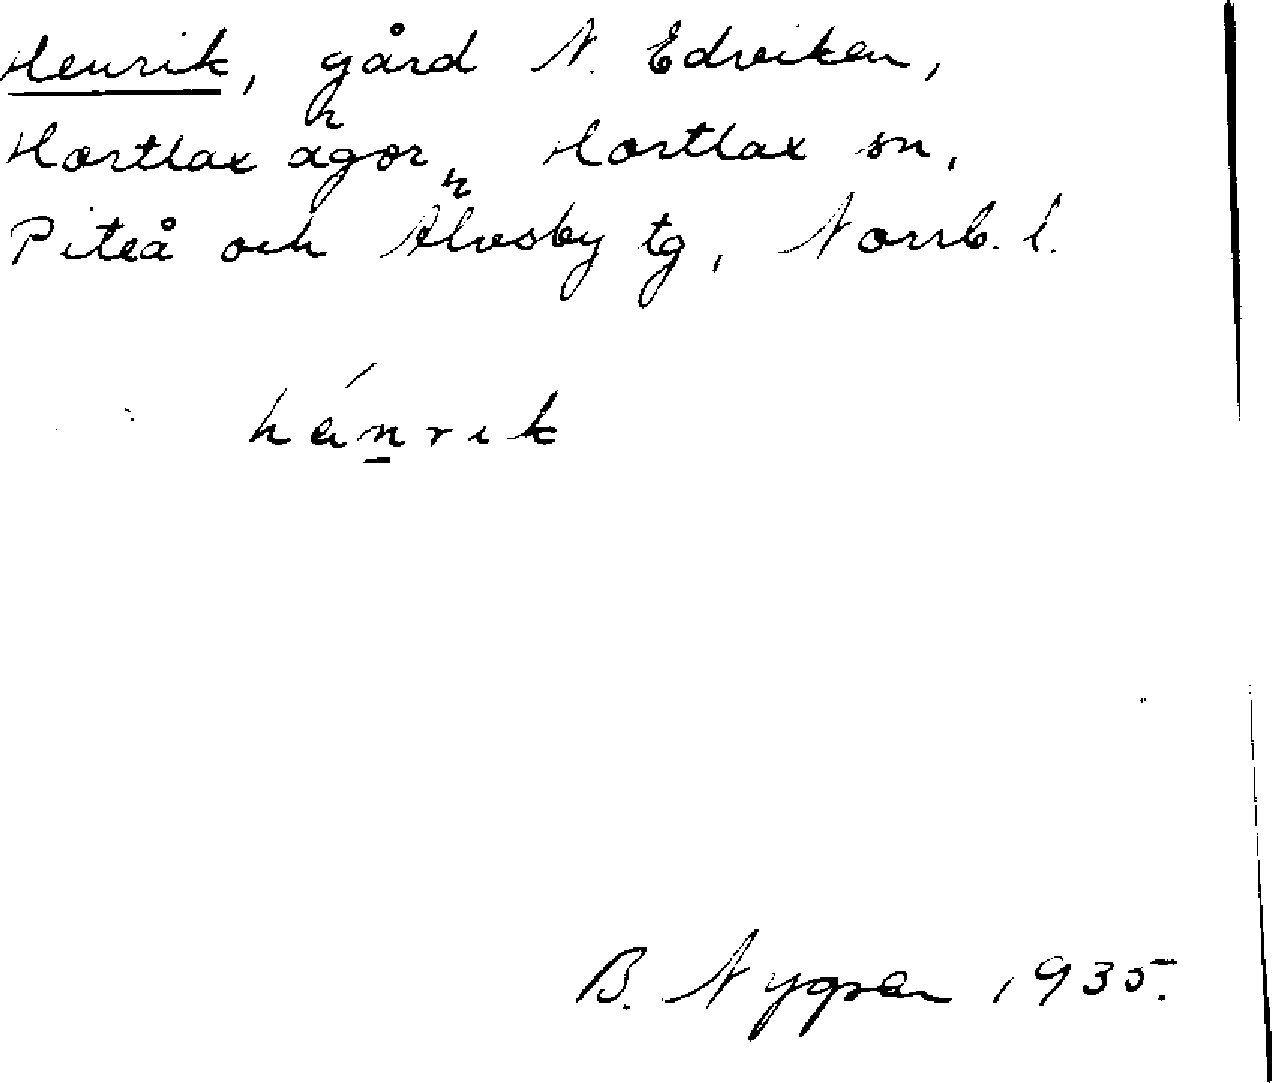 Henrik, gård N. Edviken,
Hortlax ägor, Hortlax sn,
Piteå och Älvsby tg, Norrb. l.
hénrik
B. Nygren 1935.